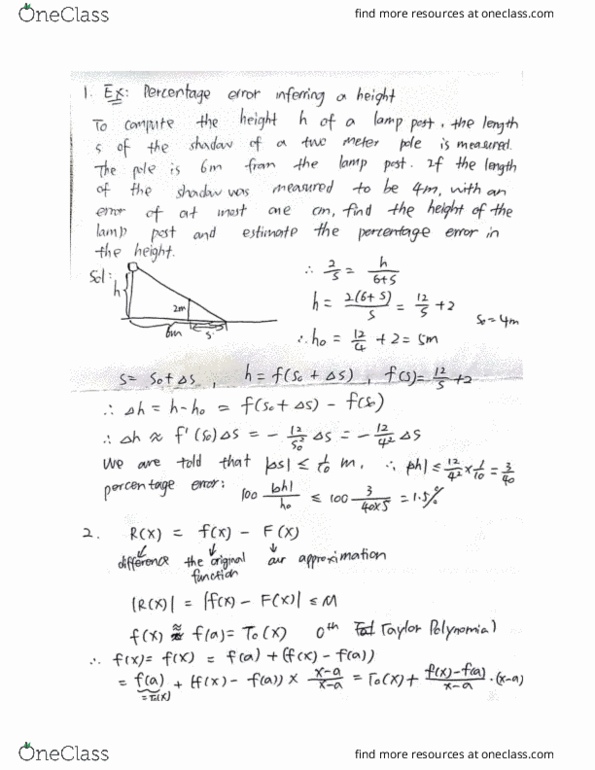 OneClass
find more resources at oneclass.com
1. Ex: Percentage error inferring a height
To compute the height h of a lamp post, the length
s of the shadow of a two meter pole is measured.
The pole is 6m from the lamp post. If the length
of the shadow was measured to be 4m, with an
error of at most one cm, find the height of the
lamp post and estimate the percentage error in
the height.
Sol:
h
2m
6m
s
∴ 2/s = h/(6+s)
h = 2(6+s)/s = 12/s + 2
s₀ = 4m
∴ h₀ = 12/4 + 2 = 5m
s = s₀ + Δs , h = f(s₀ + Δs) , f(s) = 12/s + 2
∴ Δh = h - h₀ = f(s₀ + Δs) - f(s₀)
∴ Δh ≈ f'(s₀)Δs = - 12/s₀² Δs = - 12/4² Δs
We are told that |Δs| ≤ 1/10 m, ∴ |Δh| ≤ 12/4² × 1/10 = 3/40
percentage error: 100 |Δh|/h₀ ≤ 100 3/(40×5) = 1.5%
2. R(x) = f(x) - F(x)
difference the original function our approximation
|R(x)| = |f(x) - F(x)| ≤ M
f(x) ≈ f(a) = T₀(x) 0th Taylor Polynomial
∴ f(x) = f(x) = f(a) + (f(x) - f(a))
= f(a) + (f(x) - f(a)) × (x-a)/(x-a) = T₀(x) + (f(x)-f(a))/(x-a) · (x-a)
= T₀(x)
OneClass
find more resources at oneclass.com